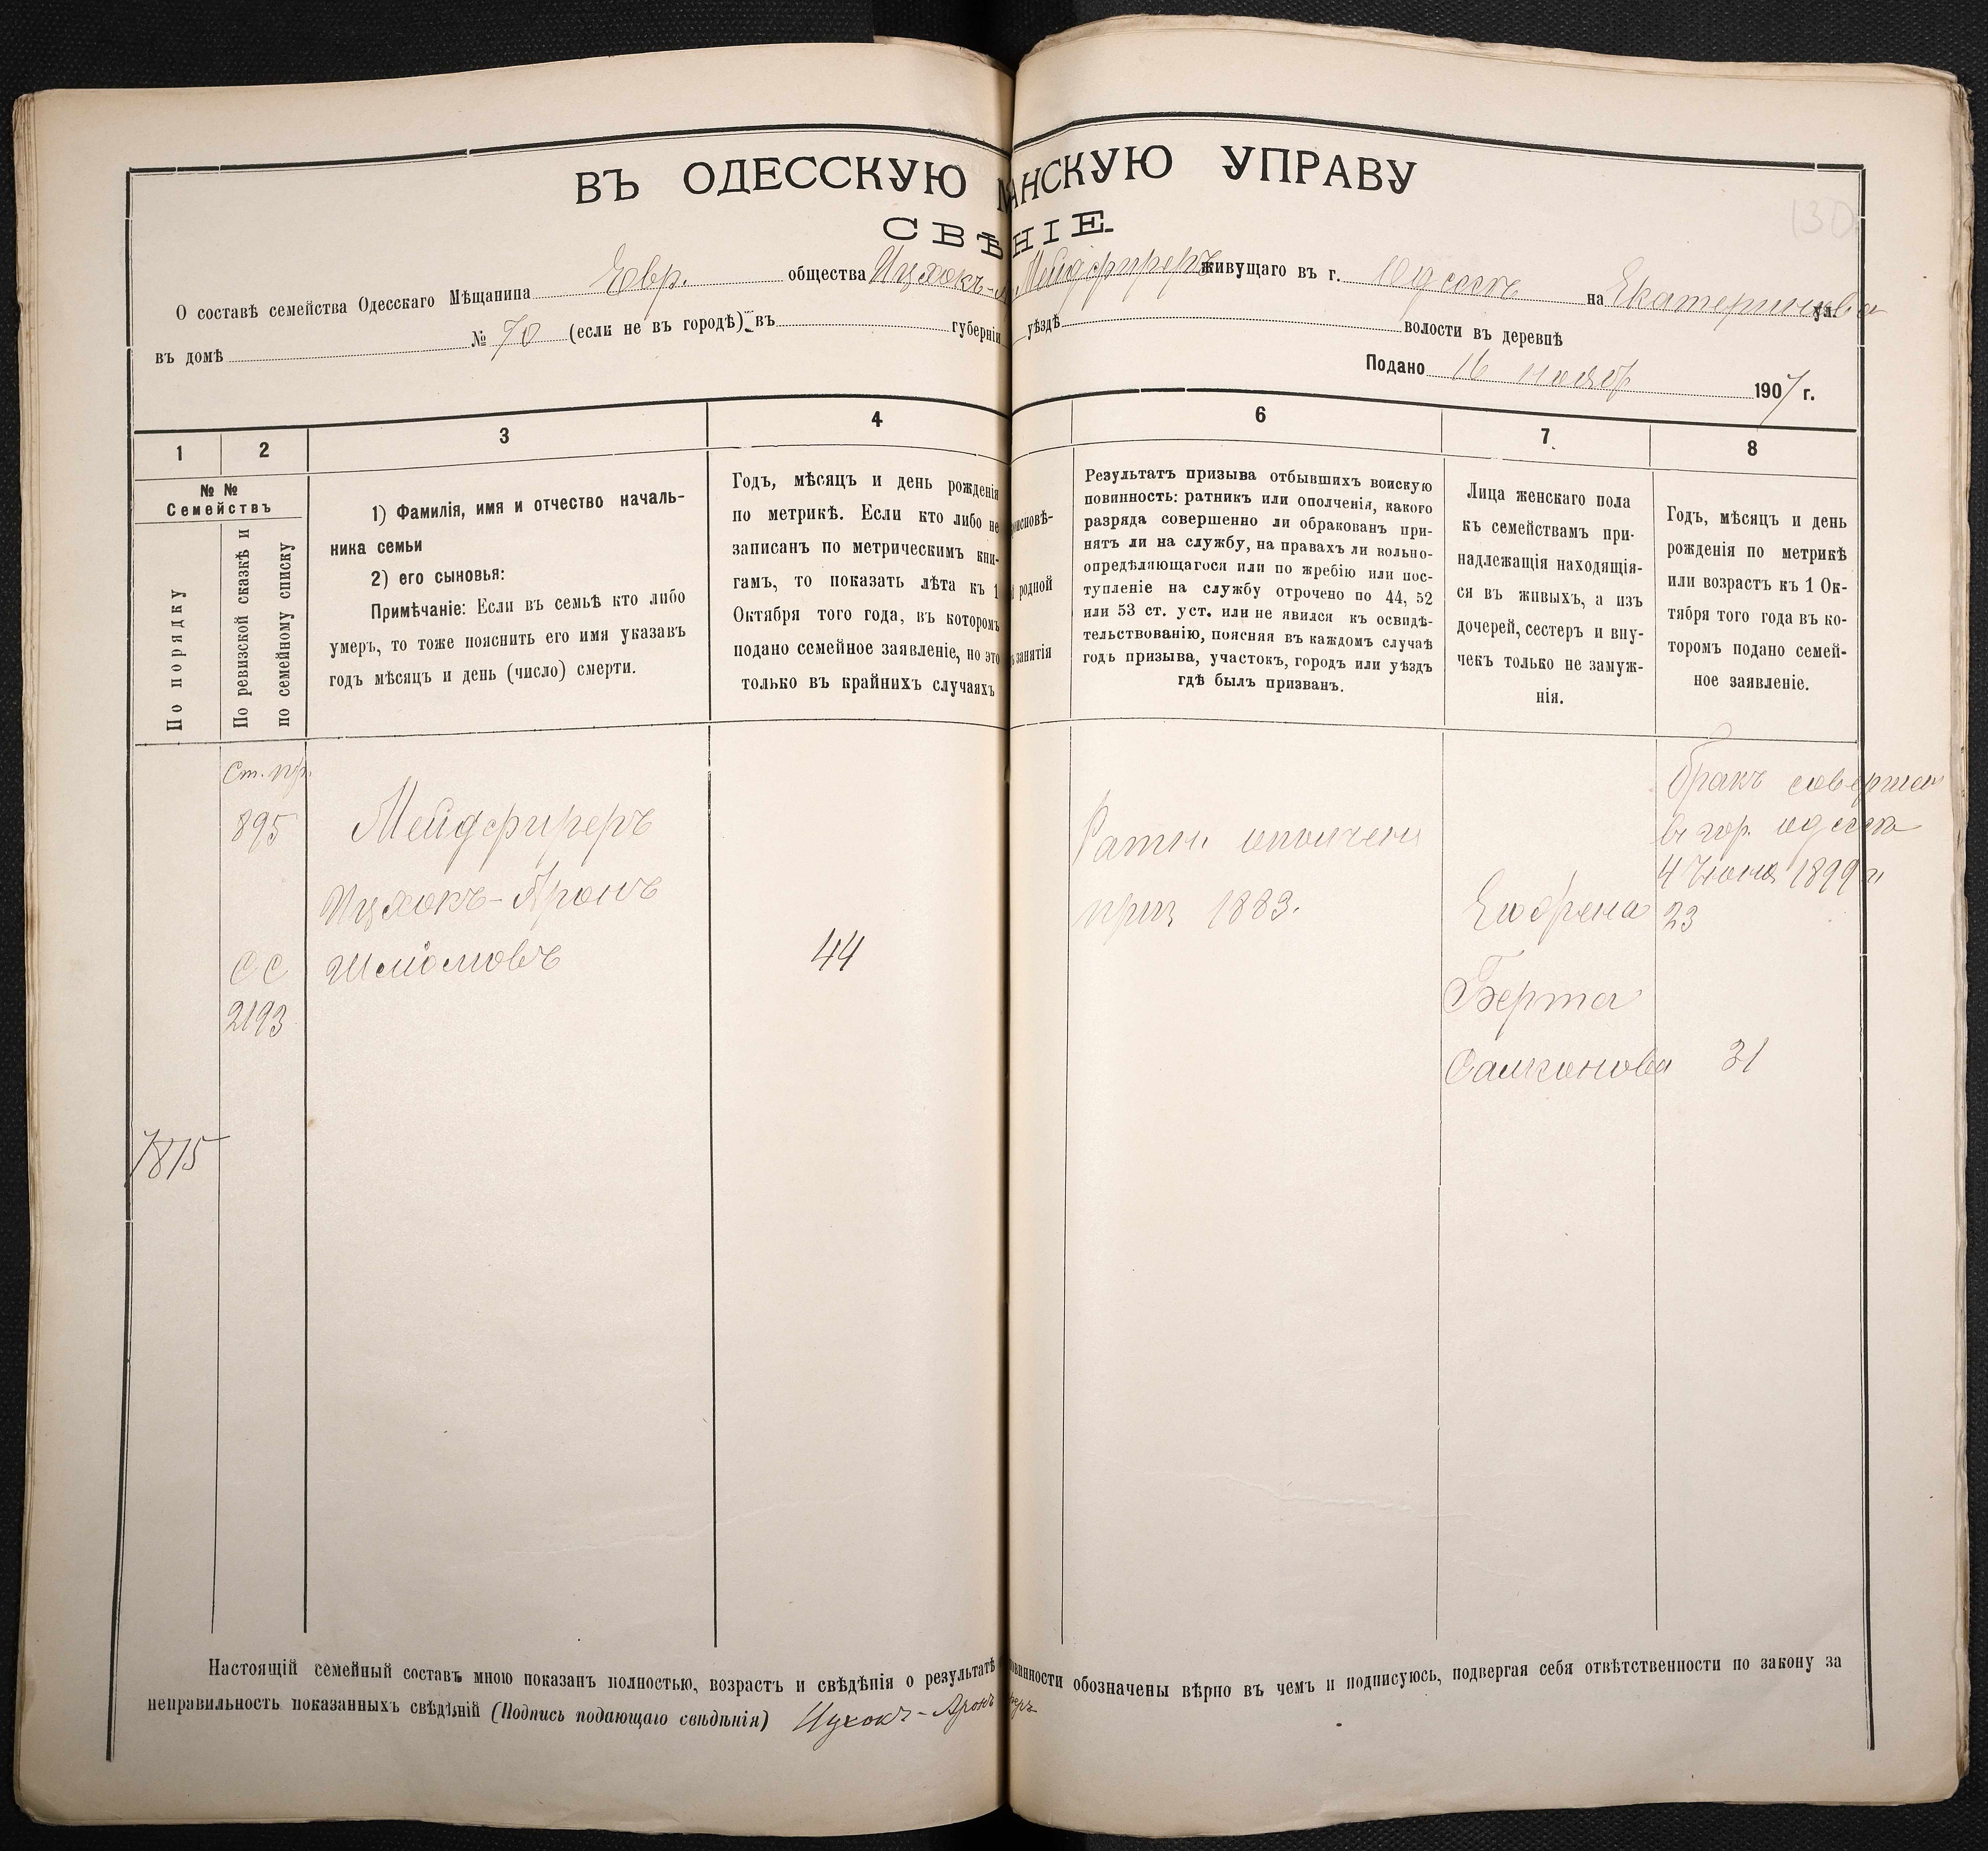 ВЪ ОДЕССКУЮ АНСКУЮ УПРАВУ
СВѢ НІЕ
130
О составѣ семейства Одесскаго Мѣщанина Евр. общества Ицхокъ- Мейдфиреръ живущаго въ г. Одессѣ на Екатеринов ул.
въ домѣ № 70 (если не въ городѣ) въ губерніи уѣздѣ волости въ деревнѣ
Подано 16 нояб 1907 г.
1 2 3 4 6 7 8
№ №
Семействъ
По порядку
По ревизской сказкѣ и
по семейному списку
1) Фамилія, имя и отчество началь-
ника семьи
2) его сыновья:
Примѣчаніе: Если въ семьѣ кто либо
умеръ, то тоже пояснить его имя указавъ
годъ мѣсяцъ и день (число) смерти.
Годъ, мѣсяцъ и день рожденія
по метрикѣ. Если кто либо не
записанъ по метрическимъ кни-
гамъ, то показать лѣта къ 1
Октября того года, въ которомъ
подано семейное заявленіе, но это
только въ крайнихъ случаяхъ
исповѣ-
родной
занятія
Результатъ призыва отбывшихъ воискую
повинность: ратникъ или ополченія, какого
разряда совершенно ли обракованъ при-
нятъ ли на службу, на правахъ ли вольно-
опредѣляющагося или по жребію или пос-
тупленіе на службу отрочено по 44, 52
или 53 ст. уст. или не явился къ освидѣ-
тельствованію, поясняя въ каждомъ случаѣ
годъ призыва, участокъ, городъ или уѣздъ
гдѣ былъ призванъ.
Лица женскаго пола
къ семействамъ при-
надлежащія находящія-
ся въ живыхъ, а изъ
дочерей, сестеръ и вну-
чекъ только не замуж-
нія.
Годъ, мѣсяцъ и день
рожденія по метрикѣ
или возрастъ къ 1 Ок-
тября того года въ ко-
торомъ подано семей-
ное заявленіе.
Ст. пр.
895
СС
2193
7815
Мейдфиреръ
Ицхокъ-Аронъ
Шлиомовъ
44
Ратн. ополчен
приз 1883.
Бракъ соверш
в гор. одесса
4 Июня 1899 г
23
Берта
Саимонова 31
Настоящій семейный составъ мною показанъ полностью, возрастъ и свѣдѣнія о результатѣ повинности обозначены вѣрно въ чемъ и подписуюсь, подвергая себя отвѣтственности по закону за
неправильность показанныхъ свѣдѣній (Подпись подающаго свѣдѣнія) Ицхокъ-Аронъ реръ